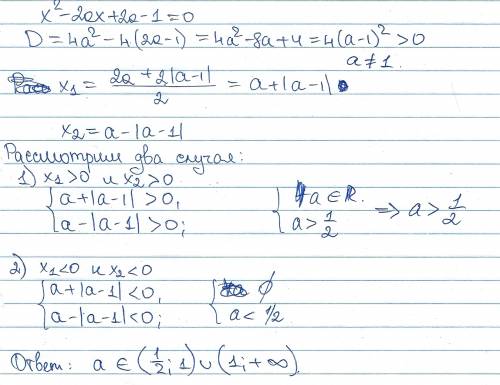 x² - 2ax + 2a - 1 = 0
D = 4a² - 4(2a-1) = 4a² - 8a + 4 = 4(a-1)² > 0
a ≠ 1.
x₁ = (2a + 2|a-1|)/2 = a + |a-1|
x₂ = a - |a-1|
Рассмотрим два случая:
1) x₁>0 и x₂>0
{ a+|a-1| >0, { a ∈ R.
{ a-|a-1| >0; { a > 1/2 ⇒ a > 1/2
2) x₁<0 и x₂<0
{ a+|a-1| <0, { ∅
{ a-|a-1| <0; { a < 1/2
Ответ: a ∈ (1/2; 1) ∪ (1; +∞).